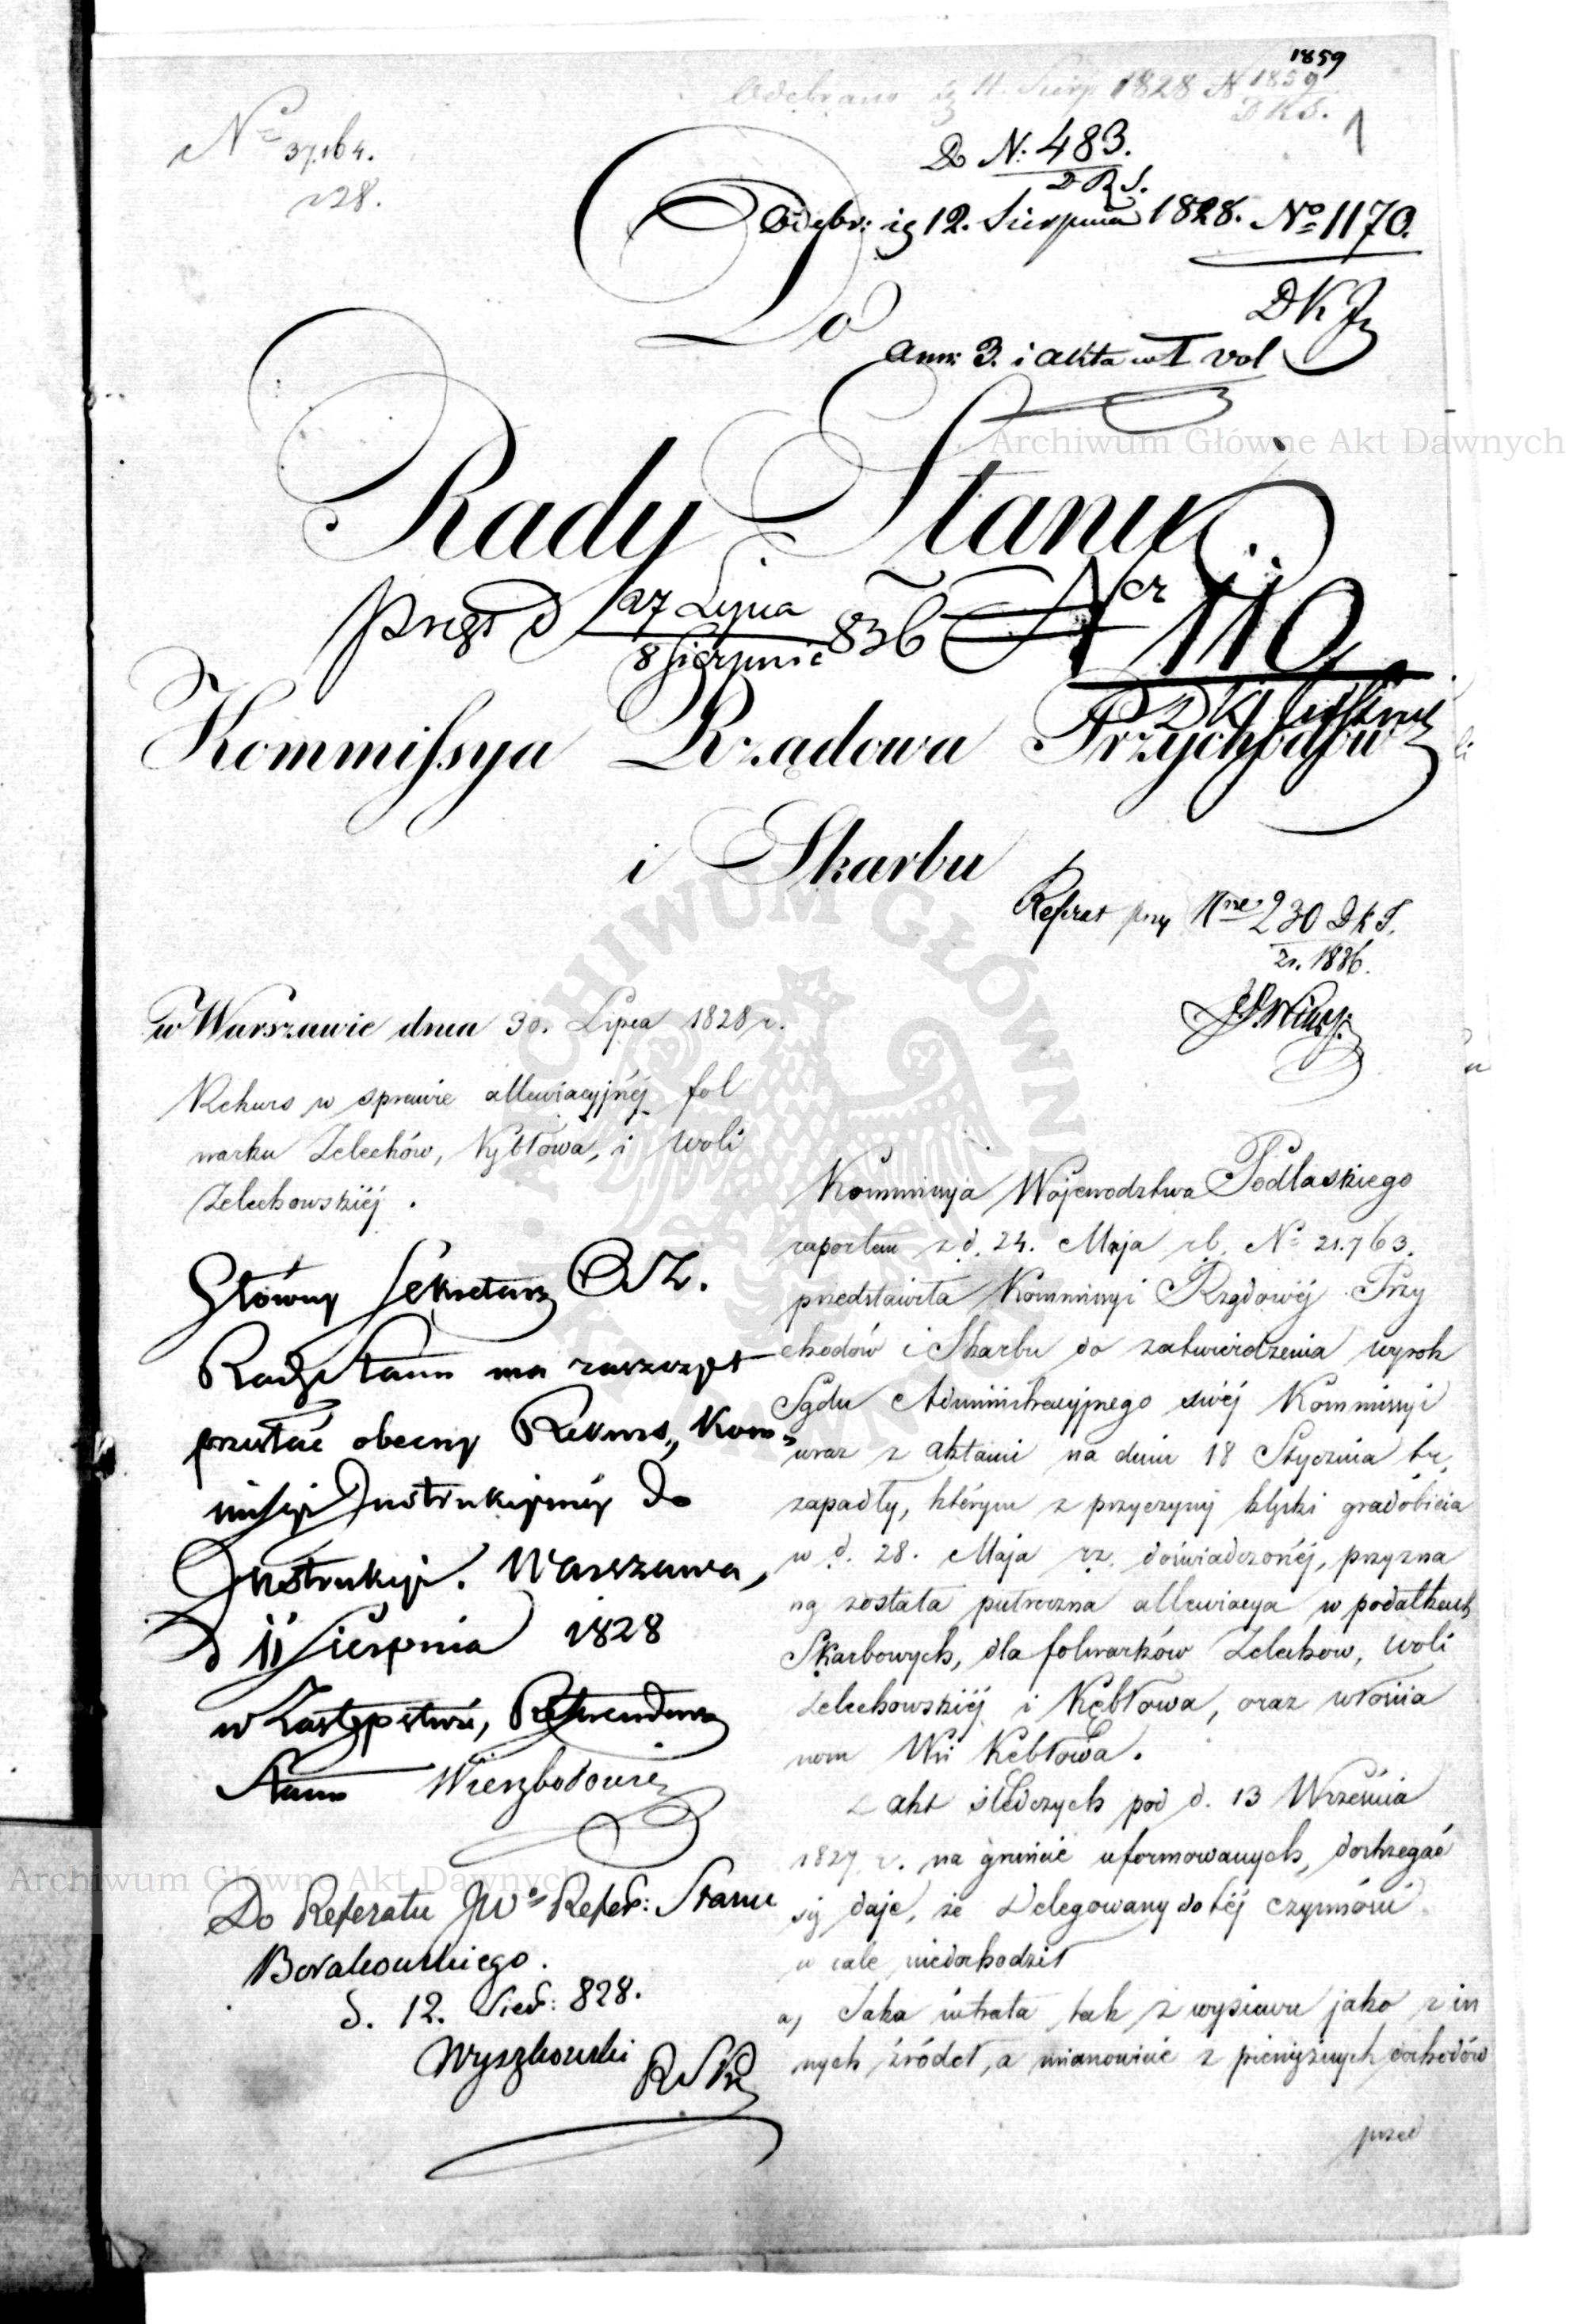 1859
Odebrano dg 11. Sierp 1828 N 1859
D.K.S.
1
N° 37.164.
828.
Do N: 483.
D K S.
Odebr: ig 12. Sierpnia 1828. No 1170.
D K J
ann: 3. i akta w I vol
Do
Archiwum Główne Akt Dawnych
Rady Stanu
27 Lipca
8 Sierpnia 836 Ner 110
D K J
Kommissya Rządowa Przychodów
i Skarbu
Referat przy Nrze 230 D K J.
z r. 1836.
w Warszawie dnia 30. Lipca 1828 r.
Rekurs w sprawie allewiacyjnéj fol
warku Zelechów, Kębłowa, i Woli
Zelechowskiéj.
Główny Sekretarz
Rady Stanu ma zaszczyt
przesłać obecny Rekurs, Kom=
missyi Instrukcyinéy do
Instrukcyi. Warszawa,
d 11 Sierpnia 1828
w Zastępstwie, Referendarz
Stanu Wierzbołowicz
Do Referatu JWo Refer: Stanu
Borakowskiego.
d. 12. Sier: 828.
Wyszkowski R S N
Kommissyja Województwa Podlaskiego
raportem z d. 24. Maja rb. No 21.763.
przedstawiła Kommissyi Rządowéj Przy
chodów i Skarbu do zatwierdzenia wyrok
Sądu Administracyjnego swéj Kommissyi
wraz z aktami na dniu 18 Stycznia br.
zapadły, którym z przyczyny klęski gradobicia
w d. 28. Maja rz. doświadczonéj, przyzna
ną została putroczna allewiacya w podatkach
Skarbowych, dla folwarków Zelechow, Woli
Zelechowskiéj i Kębłowa, oraz włościa
nom Wsi Kębłowa.
Z akt śledczych pod d. 13 Września
1827 r. na gruncie uformowanych, dostrzegać
się daje, że Delegowany do téj czynności
w cale niedochodził
a, Jaka utrata tak z wysiewu jako z in
nych źródeł, a mianowicie z pieniężnych dochodów
przed
Archiwum Główne Akt Dawnych
ARCHIWUM GŁÓWNE AKT DAWNYCH